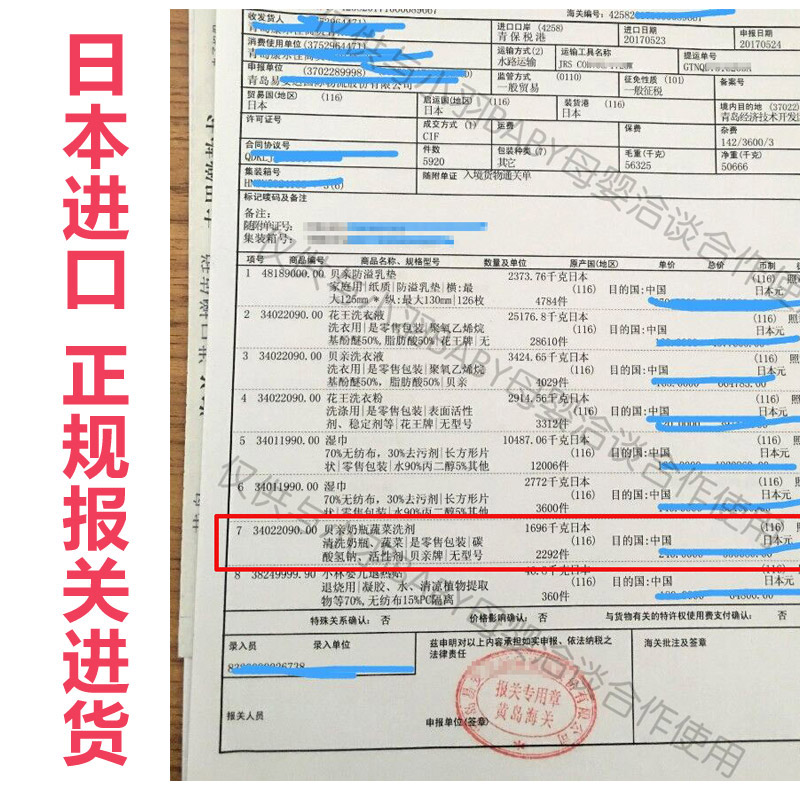 日本进口 正规报关进货
海关编号: 4258
收发货人
进口口岸 (4258)
青保税港
进口日期
20170523
申报日期
20170524
消费使用单位 (3752964471)
运输方式(2)
水路运输
运输工具名称
提运单号
申报单位 (3702289998)
监管方式 (0110)
一般贸易
征免性质 (101)
一般征税
备案号
贸易国(地区) (116)
日本
启运国(地区) (116)
日本
装货港
日本
境内目的地 (37022)
青岛经济技术开发区
许可证号
成交方式 (1)
CIF
运费
保费
杂费
142/3600/3
合同协议号
件数
5920
包装种类(7)
其它
毛重(千克)
56325
净重(千克)
50666
集装箱号
随附单证 入境货物通关单
标记唛码及备注
备注:
随附单证号:
集装箱号:
项号 商品编号 商品名称、规格型号 数量及单位 原产国(地区) 单价 总价 币制
1 48189000.00 贝亲防溢乳垫 2373.76千克日本 (116) 照
家庭用|纸质|防溢乳垫|横:最 (116) 目的国:中国 日本元
大125mm*纵:最大130mm|126枚 4784件
2 34022090.00 花王洗衣液 25176.8千克日本 (116) 照
洗衣用|是零售包装|聚氧乙烯烷 (116) 目的国:中国 日本元
基酚醚50%,脂肪酸50%|花王牌|无 28610件
3 34022090.00 贝亲洗衣液 3424.65千克日本 (116) 照
洗衣用|是零售包装|聚氧乙烯烷 (116) 目的国:中国 日本元
基酚醚50%, 脂肪酸50%|贝亲 4029件
4 34022090.00 花王洗衣粉 2914.56千克日本 (116) 照
洗涤用|是零售包装|表面活性 (116) 目的国:中国 日本元
剂、稳定剂等|花王牌|无型号 3312件
5 34011990.00 湿巾 10487.06千克日本 (116) 照
70%无纺布, 30%去污剂|长方形片 (116) 目的国:中国 日本元
状|零售包装|水90%丙二醇5%其他 12006件
6 34011990.00 湿巾 2772千克日本 (116) 照
70%无纺布, 30%去污剂|长方形片 (116) 目的国:中国 日本元
状|零售包装|水90%丙二醇5%其他 3600件
7 34022090.00 贝亲奶瓶蔬菜洗剂 1696千克日本 (116) 照
清洗奶瓶、蔬菜|是零售包装|碳 (116) 目的国:中国 日本元
酸氢钠、活性剂|贝亲牌|无型号 2292件
8 38249999.90 小林婴儿退热贴 千克日本 (116) 照
退烧用|凝胶、水、清凉植物提取 (116) 目的国:中国 日本元
物等70%,无纺布15%PC隔离 360件
特殊关系确认: 否 价格影响确认: 否 与货物有关的特许权使用费支付确认: 否
录入员 录入单位
兹申明对以上内容承担如实申报、依法纳税之
法律责任
海关批注及签章
报关人员
申报单位(签章)
报关专用章
黄岛海关
仅供与小羽BABY母婴洽谈合作使用
仅供与小羽BABY母婴洽谈合作使用
仅供与小羽BABY母婴洽谈合作使用